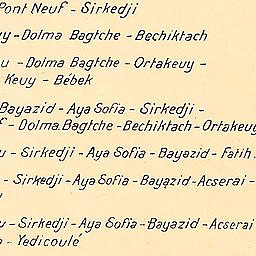 Pont Neuf - Sirkedji
uy - Dolma Bagtche - Bechiktach
u - Dolma Bagtche - Ortakeuy -
Keuy - Bébek
Bayazid - Aya Sofia - Sirkedji -
f - Dolma.Bagtche - Bechiktach - Ortakeuy
u - Sirkedji - Aya Sofia - Bayazid - Fatih.
- Sirkedji - Aya Sofia - Bayazid - Acserai -
u - Sirkedji - Aya Sofia - Bayazid - Acserai
- Yedicoulé